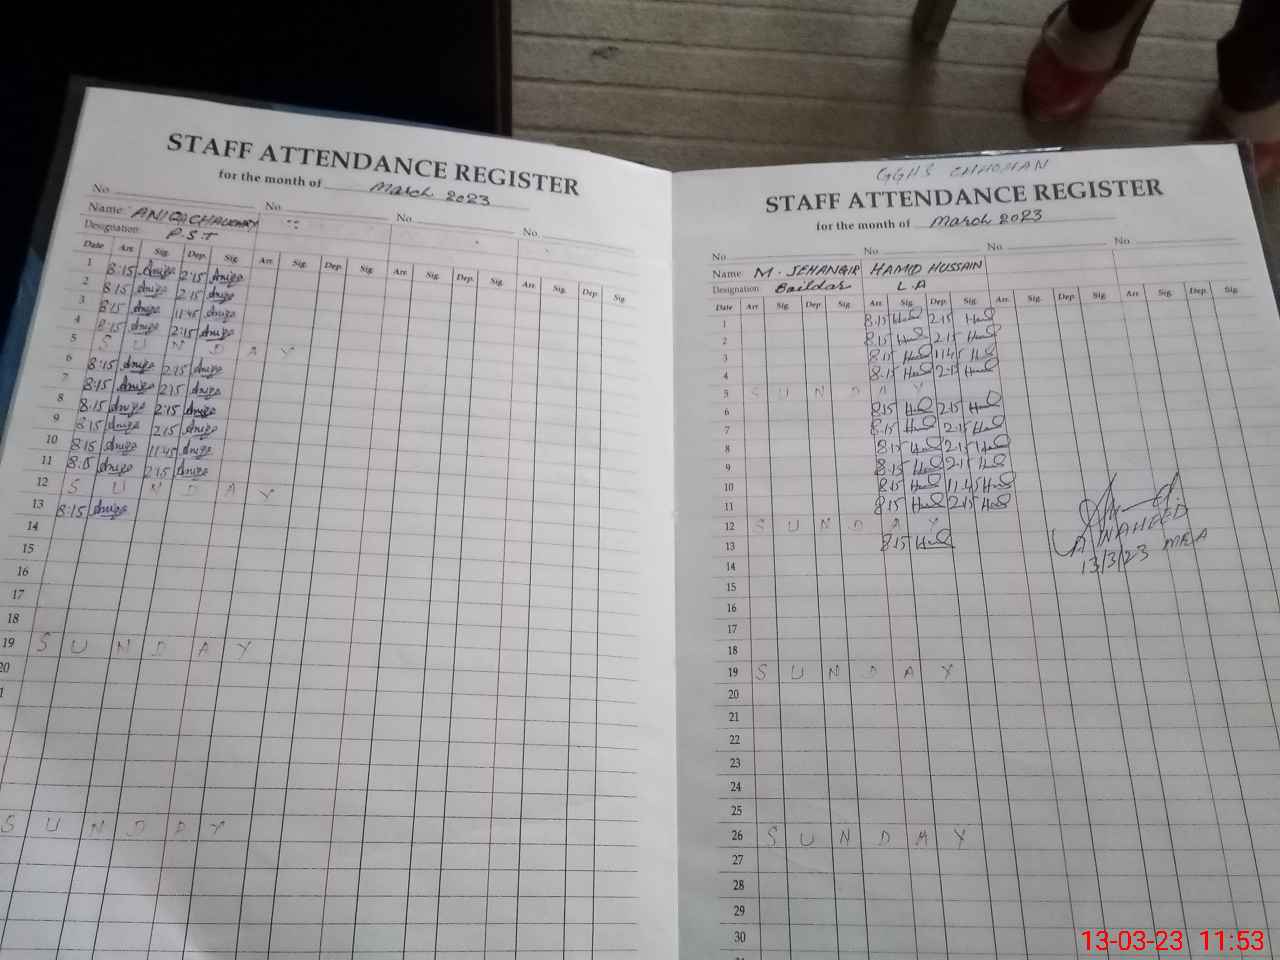 STAFF ATTENDANCE REGISTER
for the month of March 2023
No. No. No. No.
Name: ANIQA CHAUDHARY
Designation P.S.T
Date Arr. Sig. Dep. Sig. Arr. Sig. Dep. Sig. Arr. Sig. Dep. Sig. Arr. Sig. Dep. Sig.
1 8:15 Aniqa 2:15 Aniqa
2 8:15 Aniqa 2:15 Aniqa
3 8:15 Aniqa 11:45 Aniqa
4 8:15 Aniqa 2:15 Aniqa
5 S U N D A Y
6 8:15 Aniqa 2:15 Aniqa
7 8:15 Aniqa 2:15 Aniqa
8 8:15 Aniqa 2:15 Aniqa
9 8:15 Aniqa 2:15 Aniqa
10 8:15 Aniqa 11:45 Aniqa
11 8:15 Aniqa 2:15 Aniqa
12 S U N D A Y
13 8:15 Aniqa
14
15
16
17
18
19 S U N D A Y
20
1
S U N D A Y
GGHS
STAFF ATTENDANCE REGISTER
for the month of March 2023
No. No. No. No.
Name: M. JEHANGIR HAMID HUSSAIN
Designation Baildar L.A
Date Arr. Sig. Dep. Sig. Arr. Sig. Dep. Sig. Arr. Sig. Dep. Sig. Arr. Sig. Dep. Sig.
1 8:15 2:15
2 8:15 2:15
3 8:15 11:45
4 8:15 2:15
5 S U N D A Y
6 8:15 2:15
7 8:15 2:15
8 8:15 2:15
9 8:15 2:15
10 8:15 11:45
11 8:15 2:15
12 S U N D A Y
13 8:15
14
15
16
17
18
19 S U N D A Y
20
21
22
23
24
25
26 S U N D A Y
27
28
29
30
WAHEED
13/3/23 MEA
13-03-23 11:53